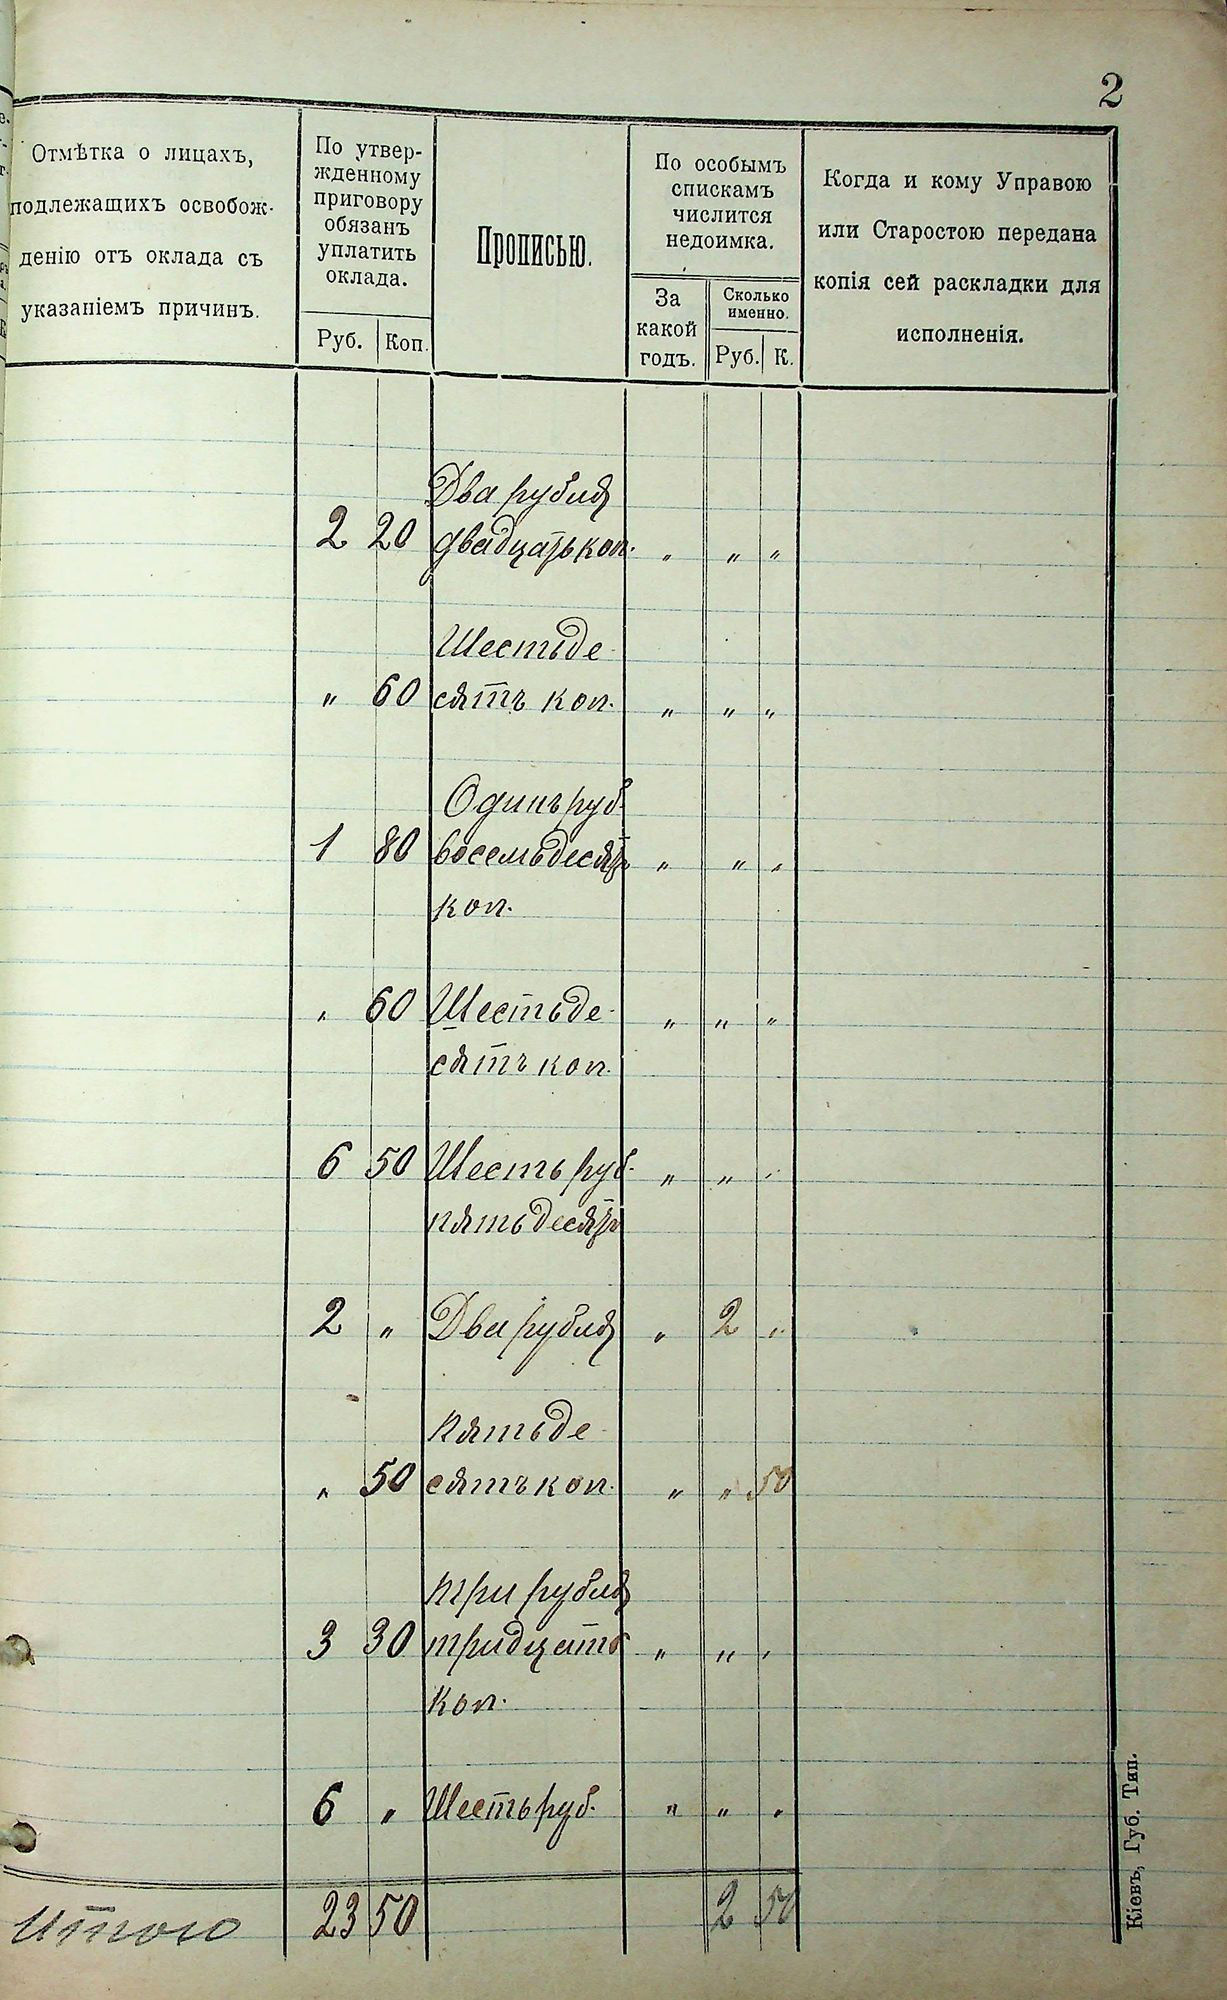 2
Отмѣтка о лицахъ,
подлежащихъ освобож-
денію отъ оклада съ
указаніемъ причинъ.
По утвер-
жденному
приговору
обязанъ
уплатить
оклада.
Руб. Коп.
Прописью.
По особымъ
спискамъ
числится
недоимка.
За
какой
годъ.
Сколько
именно.
Руб. К.
Когда и кому Управою
или Старостою передана
копія сей раскладки для
исполненія.
Два рубля
2 20 двадцать коп. " " "
Шестьде-
" 60 сятъ коп. " " "
Одинъ руб.
1 80 восемьдесятъ " " "
коп.
" 60 Шестьде- " " "
сятъ коп.
6 50 Шесть руб. " " "
пятьдесятъ
2 " Два рубля " 2 "
Пятьде-
" 50 сятъ коп. " " 50
Три рубля
3 30 тридцать " " "
коп.
6 " Шесть руб. " " "
Итого 23 50 2 50
Кіевъ, Губ. Тип.